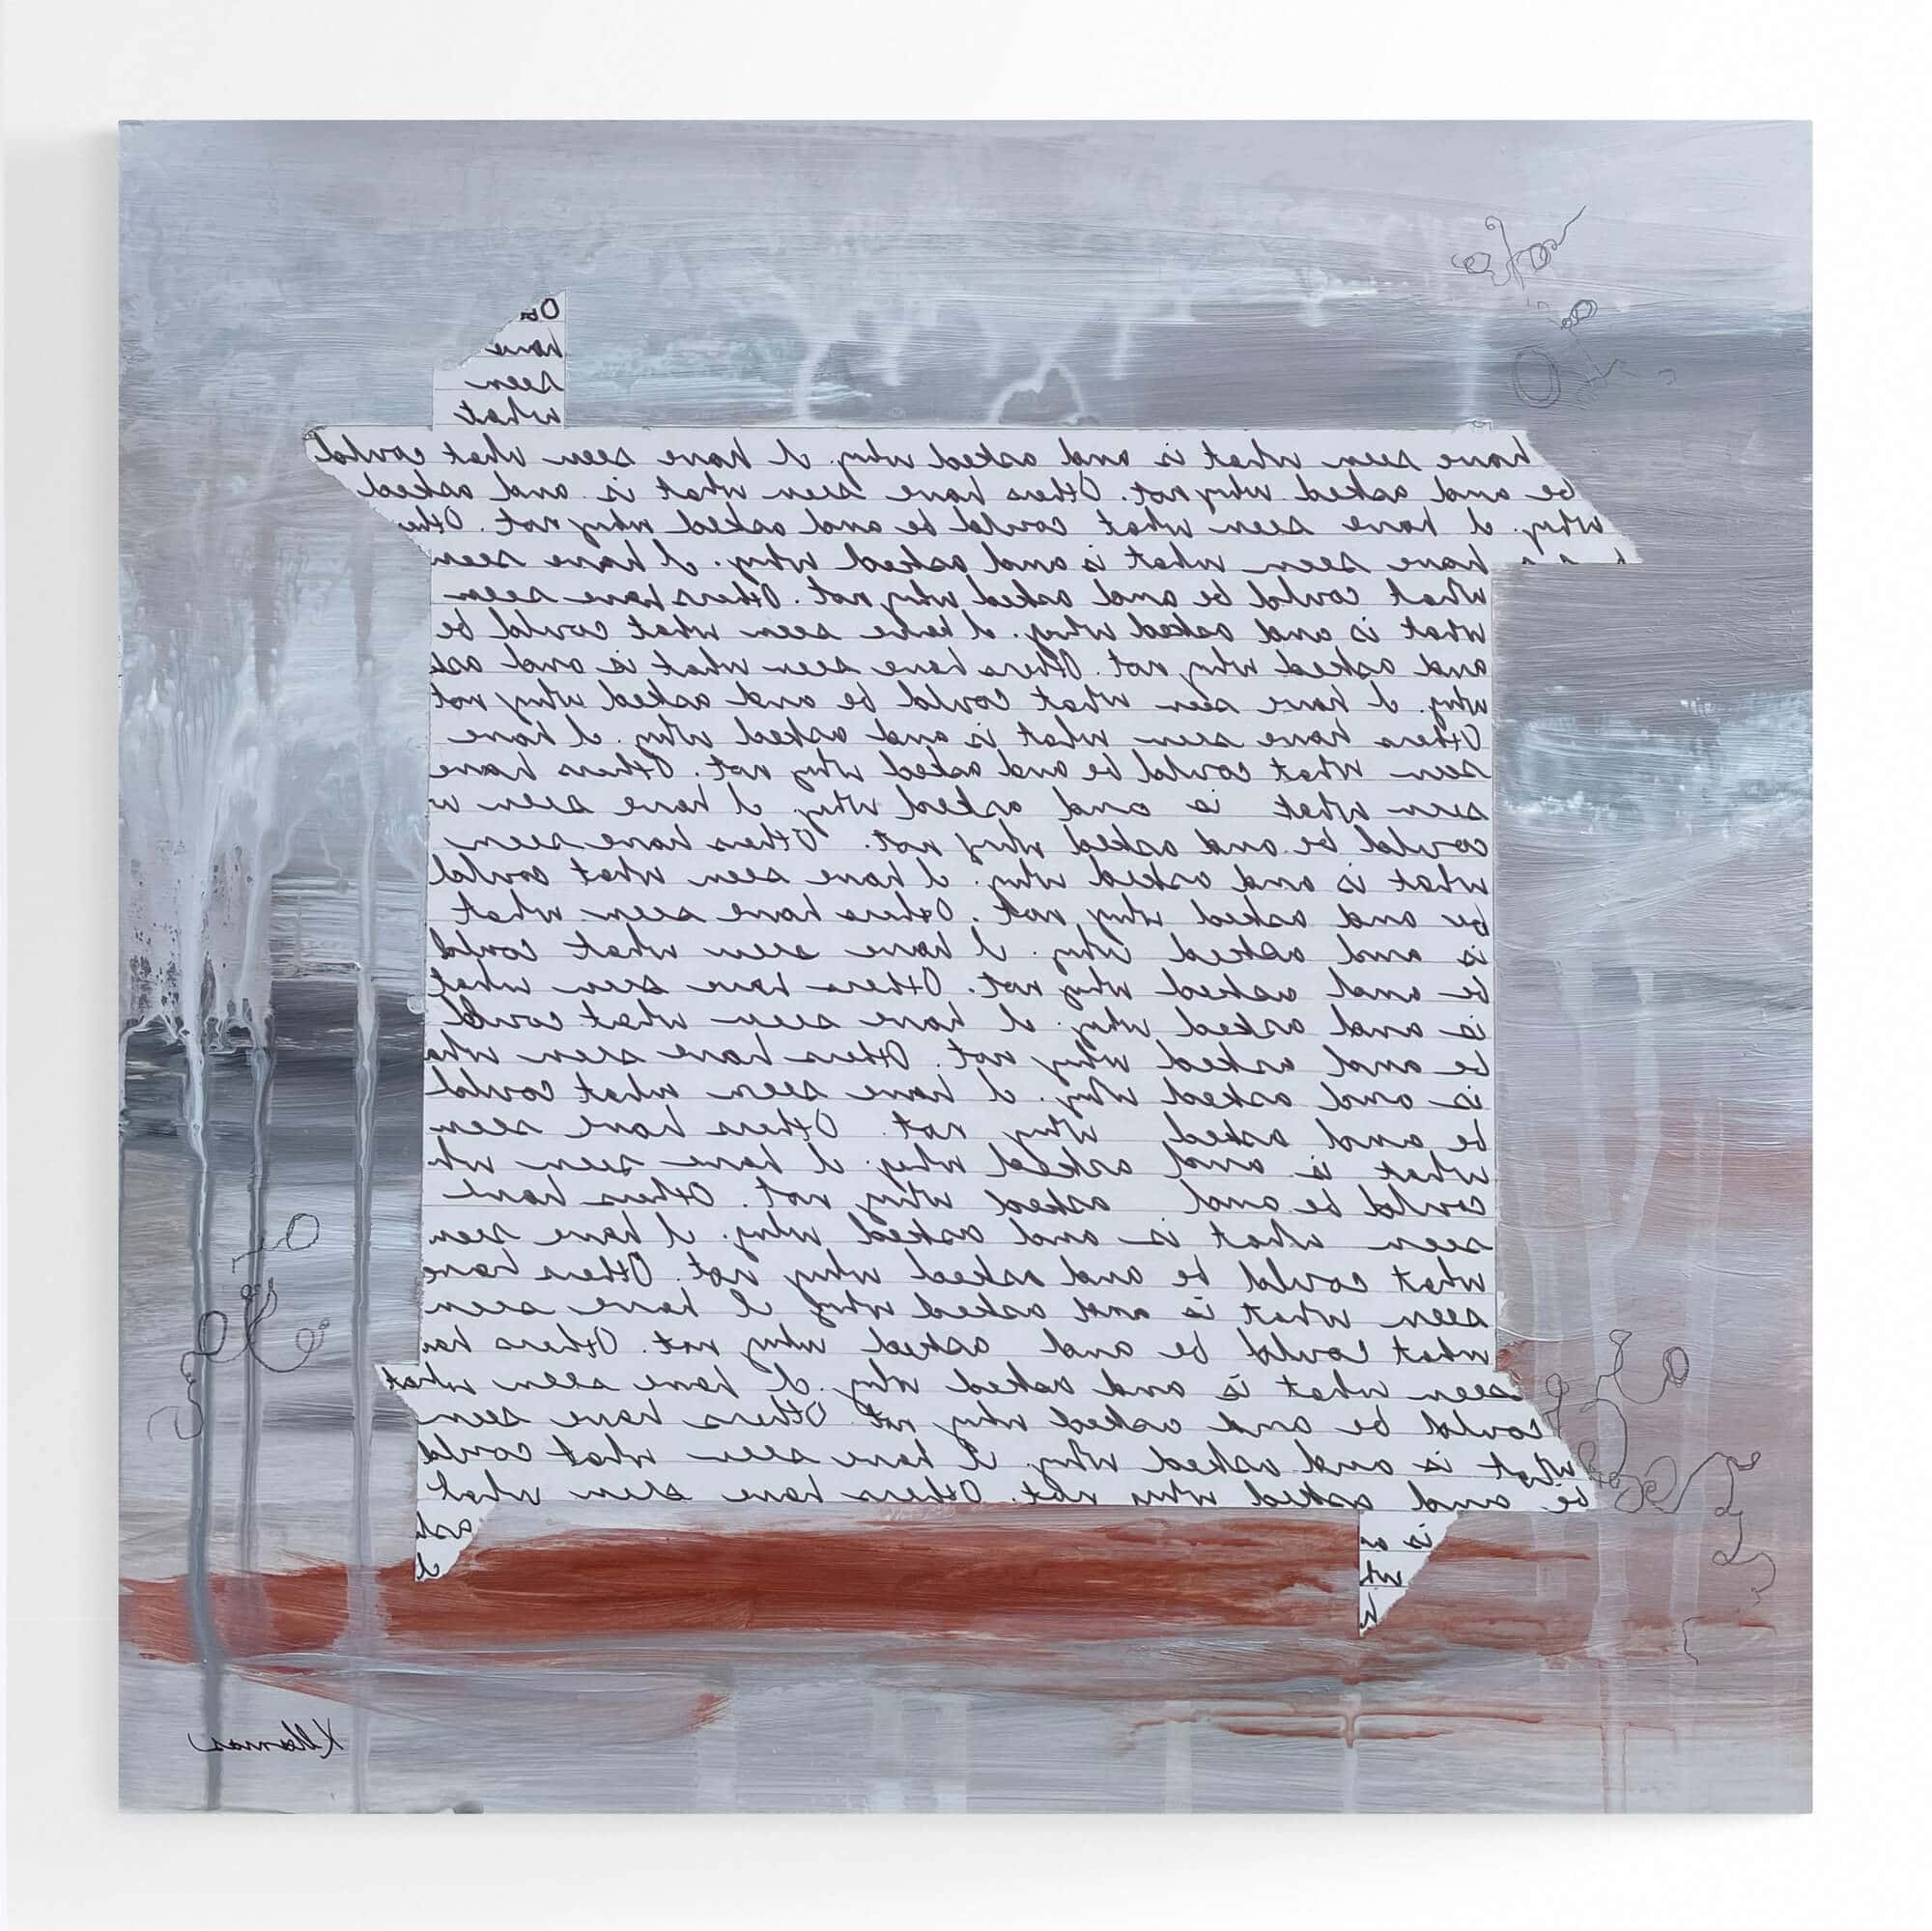 have
seen
what
have seen what is and asked why. I have seen what could
be and asked why not. Others have seen what is and asked
why. I have seen what could be and asked why not. Othe
have seen what is and asked why. I have seen
what could be and asked why not. Others have seen
what is and asked why. I have seen what could be
and asked why not. Others have seen what is and as
why. I have seen what could be and asked why not
Others have seen what is and asked why. I have
seen what could be and asked why not. Others have
seen what is and asked why I have seen w
could be and asked why not. Others have seen
what is and asked why. I have seen what could
be and asked why not. Others have seen what
is and asked why. I have seen what could
be and asked why not. Others have seen what
is and asked why. I have seen what could
be and asked why not. Others have seen wha
is and asked why. I have seen what could
be and asked why not. Others have seen
what is and asked why. I have seen wh
could be and asked why not. Others have
seen what is and asked why. I have seen
what could be and asked why not. Others have
seen what is and asked why I have seen
what could be and asked why not. Others ha
seen what is and asked why. I have seen what
could be and asked why not. Others have seen
what is and asked why. I have seen what could
be and asked why not. Others have seen what
is a ask
wh I
h